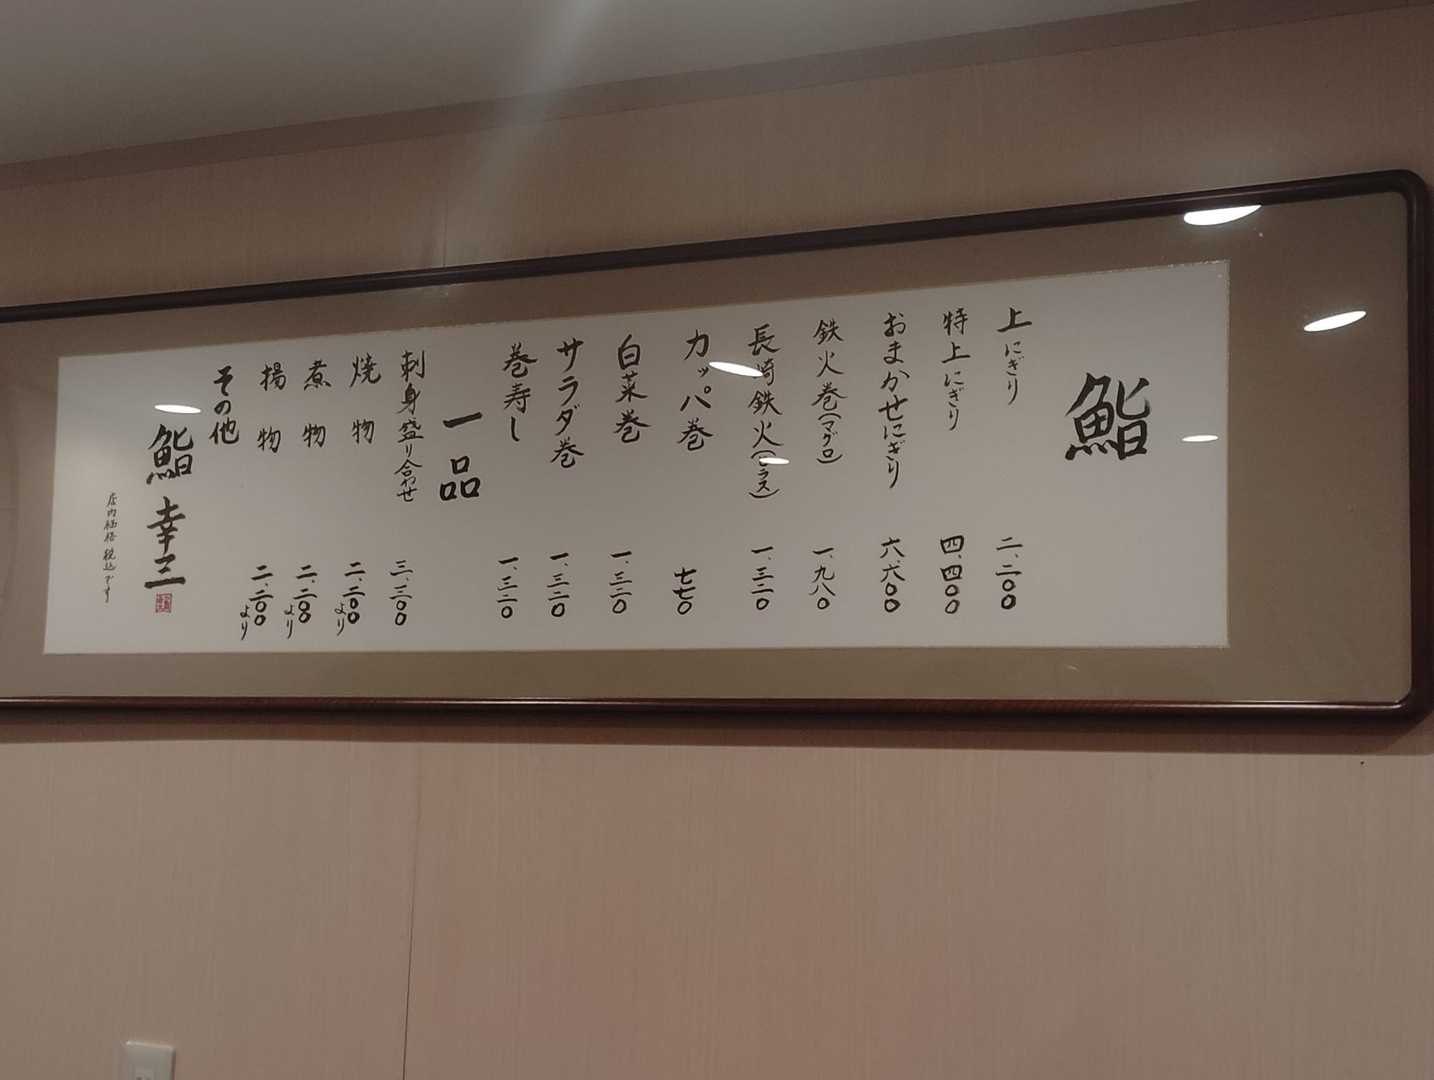 鮨
上にぎり 二、二〇〇
特上にぎり 四、四〇〇
おまかせにぎり 六、六〇〇
鉄火巻(マグロ) 一、九八〇
長崎鉄火(ヒラス) 一、三二〇
カッパ巻 七七〇
白菜巻 一、三二〇
サラダ巻 一、三二〇
巻寿し 一、三二〇
一品
刺身盛り合わせ 三、三〇〇
焼物 二、二〇〇より
煮物 二、二〇〇より
揚物 二、二〇〇より
その他
鮨 幸三
店内価格 税込です